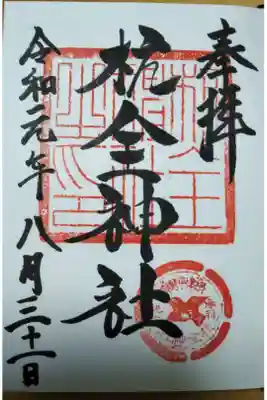 奉拝
杭全神社
令和元年八月三十一日